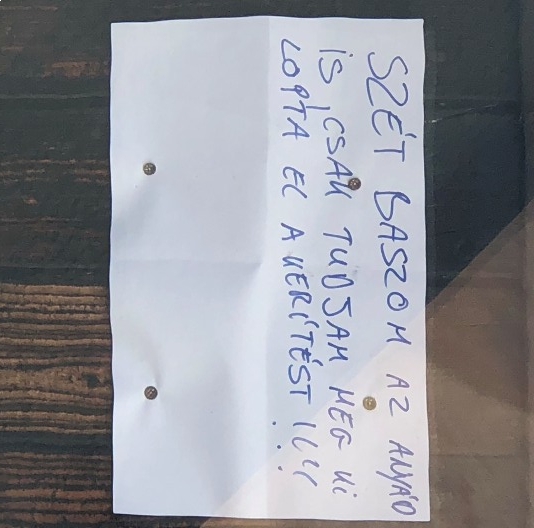 SZÉT BASZOM AZ ANYÁD
IS, CSAK TUDJAM MEG KI
LOPTA EL A KERÍTÉST !!!